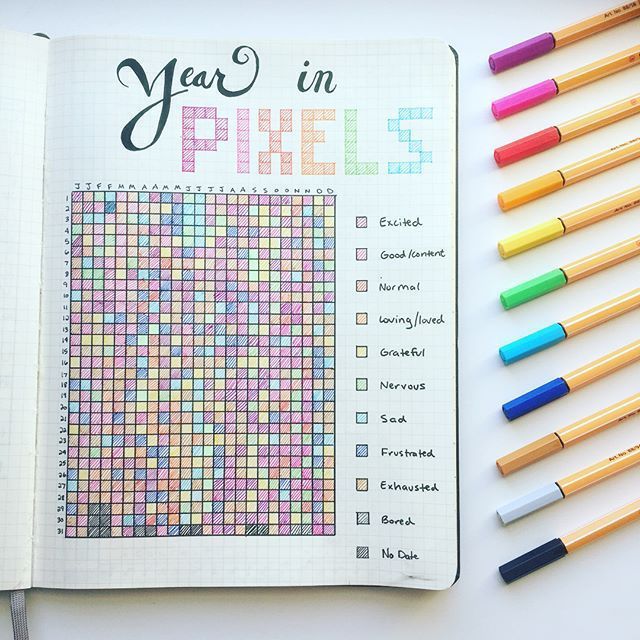 Year in
PIXELS
J J F F M M A A M M J J J J A A S S O O N N D D
1
2
3
4
5
6
7
8
9
10
11
12
13
14
15
16
17
18
19
20
21
22
23
24
25
26
27
28
29
30
31
Excited
Good/content
Normal
Loving/loved
Grateful
Nervous
Sad
Frustrated
Exhausted
Bored
No Date
Art. No.
Art. No.
Art. No.